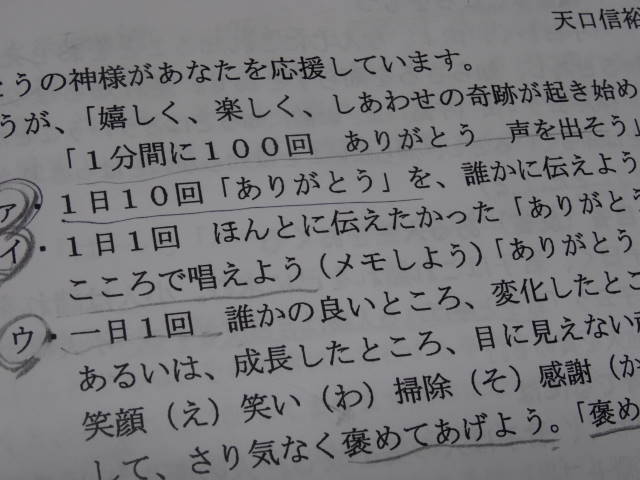 天口信裕
とうの神様があなたを応援しています。
うが、「嬉しく、楽しく、しあわせの奇跡が起き始め
「１分間に１００回　ありがとう　声を出そう」
ア・１日１０回「ありがとう」を、誰かに伝えよう
イ・１日１回　ほんとに伝えたかった「ありがとう
こころで唱えよう（メモしよう）「ありがとう
ウ・一日１回　誰かの良いところ、変化したとこ
あるいは、成長したところ、目に見えない
笑顔（え）笑い（わ）掃除（そ）感謝（か
して、さり気なく褒めてあげよう。「褒め